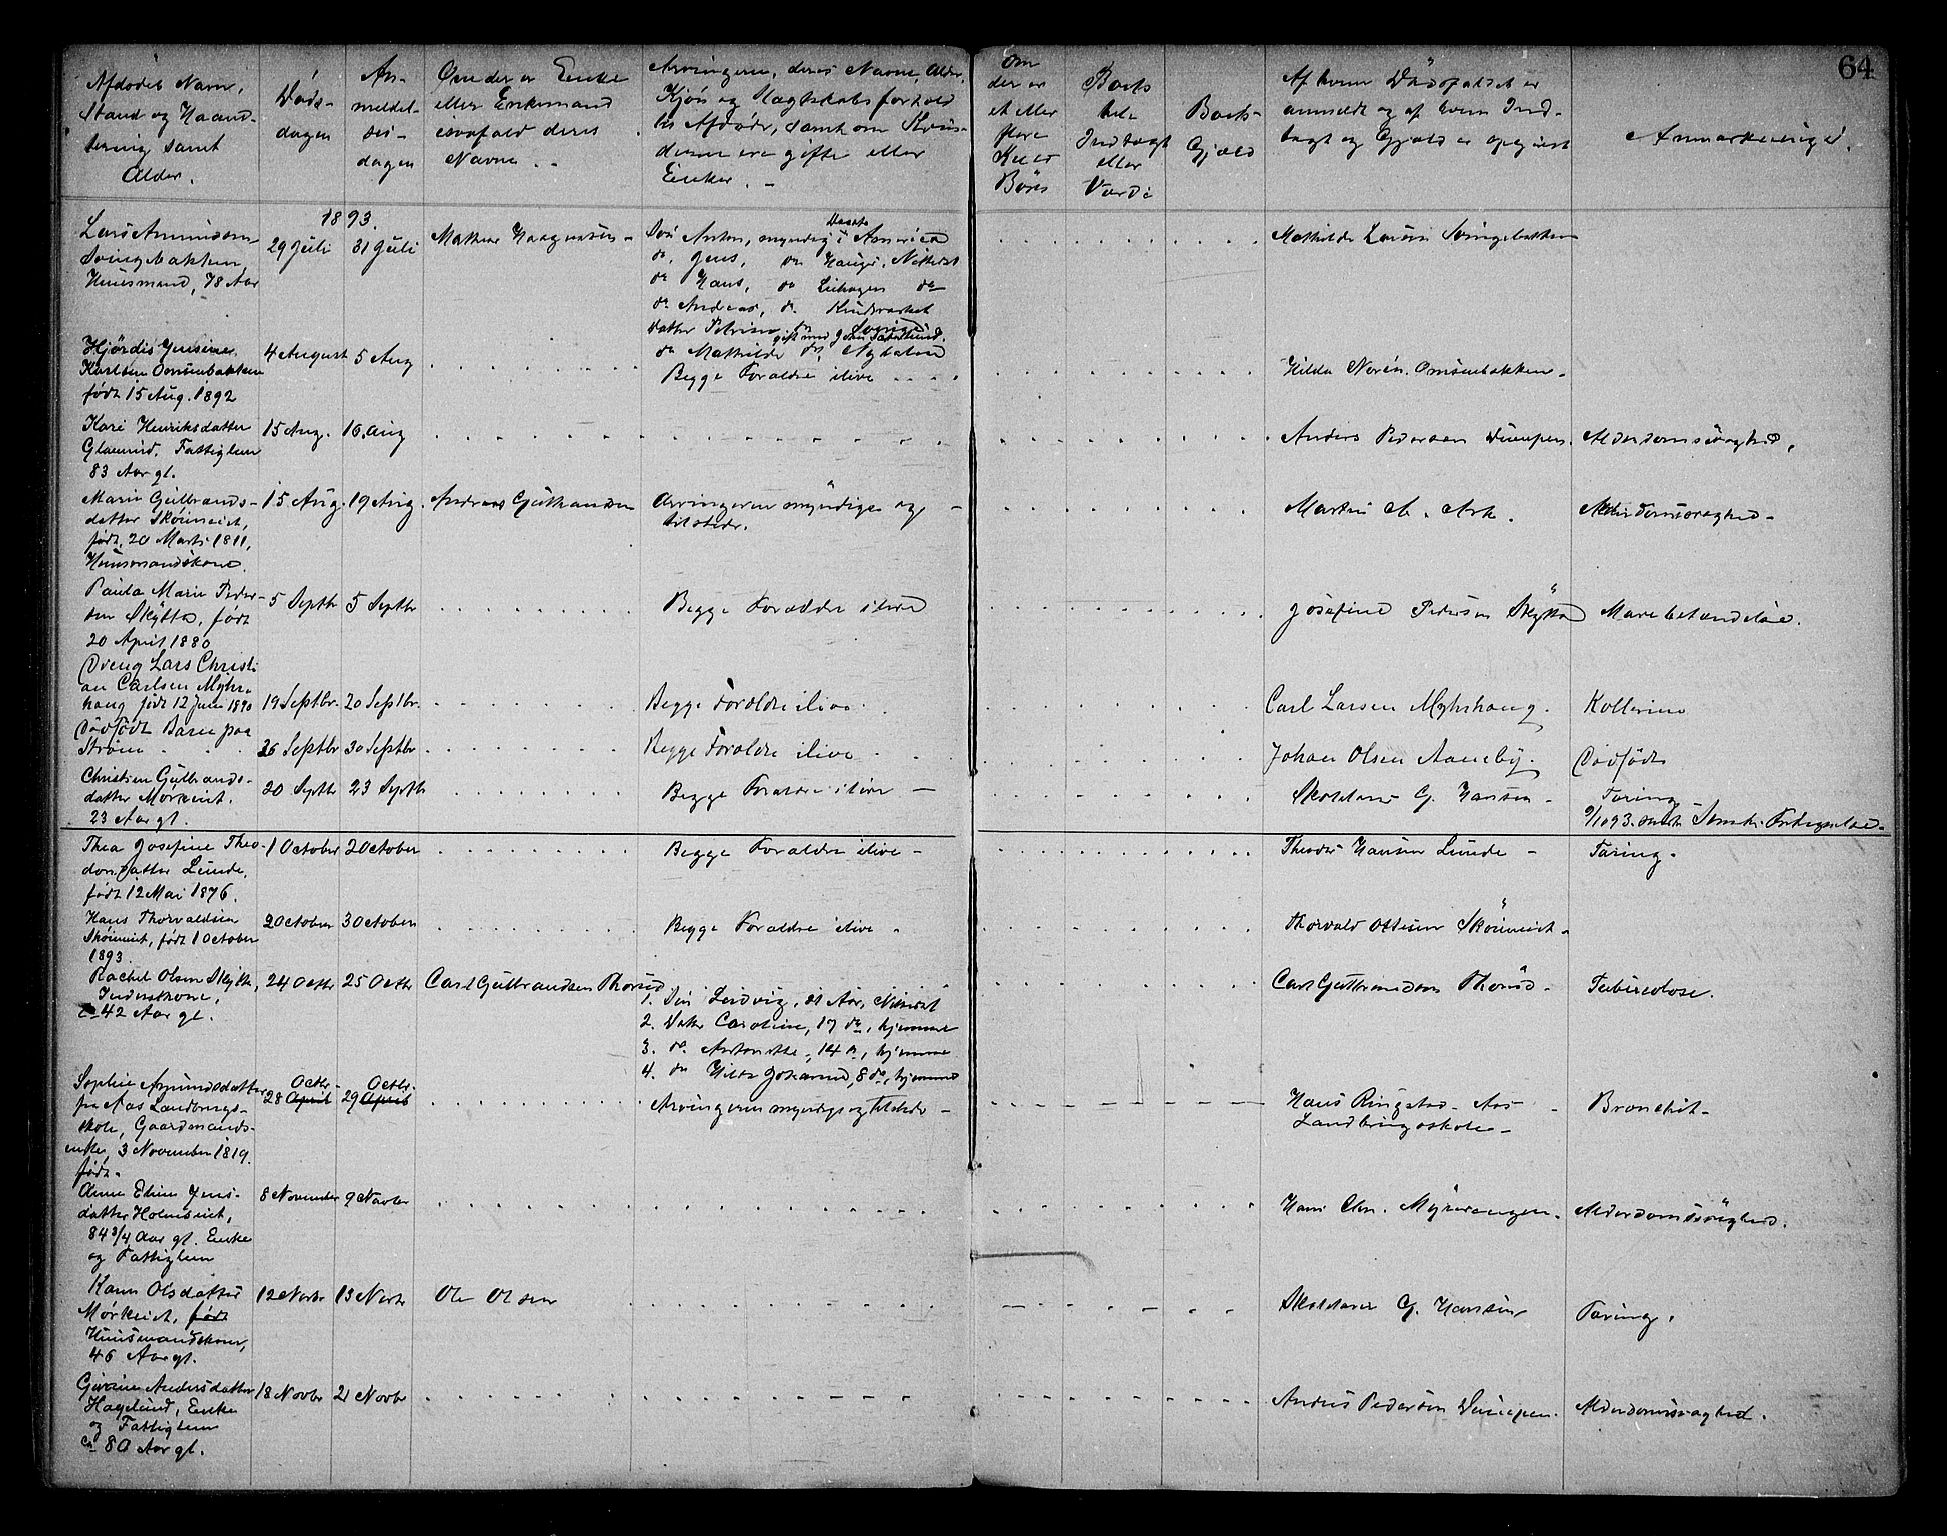 64
Afdødes Navn,
Stand og Haand-
tering samt
Alder.
Døds-
dagen
An-
meldel-
ses-
dagen
Om der er Enke
eller Enkemand
isaafald deres
Navne
Arvingerne, deres Navne, Alder,
Kjøn og Slagtskabsforhold
til Afdøde, samt om Kvin-
derne ere gifte eller
Enker.
Om
der er
et eller
flere
Kuld
Børn
Boets
hele
Indtægt
eller
Værdi
Boets
Gjæld
Af hvem Dødsfaldet er
anmeldt og af hvem Ind-
tægt og Gjæld er opgivet
Anmærkninger.
1893.
Lars Amundsen
Svingebakken
Huusmand, 78 Aar
29 Juli 31 Juli
Søn Anton, myndig i America
do Jens, do
do Hans, do
do Andreas, do
do Mathilde do
Mathilde Larsen Svingebakken
Hjørdis Jensine
Karlsen Omsenbakken
født 15 Aug. 1892
4 August 5 Aug
Begge Forældre ilive
Hilda Norén. Omsenbakken
Kari Henriksdatter
Fattiglem
83 Aar gl.
15 Aug. 16. Aug
Anders Pedersen
Alderdomssvaghed.
Marie Gulbrands-
datter Skøinneiet,
født 20 Marts 1811,
Huusmandskone.
15 Aug. 19 Aug. Andreas
Arvingerne myndige og
tilstede.
Alderdomssvaghed
Paula Marie Peder-
sen Skytta, født
20 April 1880
5 Septbr 5 Septbr
Begge Forældre ilive
Josefine Pedersen Skytta
Mavebetændelse.
Dreng Lars Christi-
an Carlsen Myhr-
haug født 12 Juni 1890
19 Septbr. 20 Septbr.
Begge Forældre ilive
Carl Larsen Myhrhaug.
Kollerine
Dødfødt Barn paa
Strøm
26 Septbr 30 Septbr
Begge Forældre ilive
Johan Olsen Aaneby.
Dødfødt
Christian Gulbrands-
datter Mørkeiet.
23 Aar gl.
20 Septbr 23 Septbr
Begge Forældre ilive
Skolelærer G. Hansen
Tæring
Thea Josefine Theo-
dorsdatter Lunde,
født 12 Mai 1876.
1 October 2 October
Begge Forældre ilive
Theodor Hansen Lunde
Tæring.
Hans Thorvaldsen
Skøinneiet, født 1 October
1893.
2 October 3 October
Begge Forældre ilive
Thorvald Ottesen Skøinneiet
Rachel Olsen Skytta,
Inderstkone,
ca 42 Aar gl.
24 Octbr 25 Octbr Carl Gulbrandsen Thorud
1. Søn Ludvig, 21 Aar, Nittedal
2. Datter Caroline, 17 do, hjemme
3. do Antonette, 14 do, hjemme
4. do Hilda Johanna, 8 do, hjemme
Carl Gulbrandsen Thorud
Tuberculose.
Sophie Amundsdatter
fra Aas Landbrugs-
skole, Gaardmands-
enke, 3 November 1819.
født
Octbr. Octbr.
28 April 29 April
Arvingerne myndige og tilstede
Hans Ringstad Aas
Landbrugsskole
Bronchit
Anne Eline Jens-
datter Holmseiet,
84 3/4 Aar gl. Enke
og Fattiglem
8 November 9 Novbr
Hans Chr. Myrerengen
Alderdomssvaghed.
Karen Olsdatter
Mørkeiet, født
Huusmandskone,
46 Aar gl.
12 Novbr 13 Novbr Ole Olsen
Skolelærer G. Hansen
Tæring.
Andersdatter
Hagelund, Enke
og Fattiglem
ca 80 Aar gl.
18 Novbr 21 Novbr
Anders Pedersen
Alderdomssvaghed.